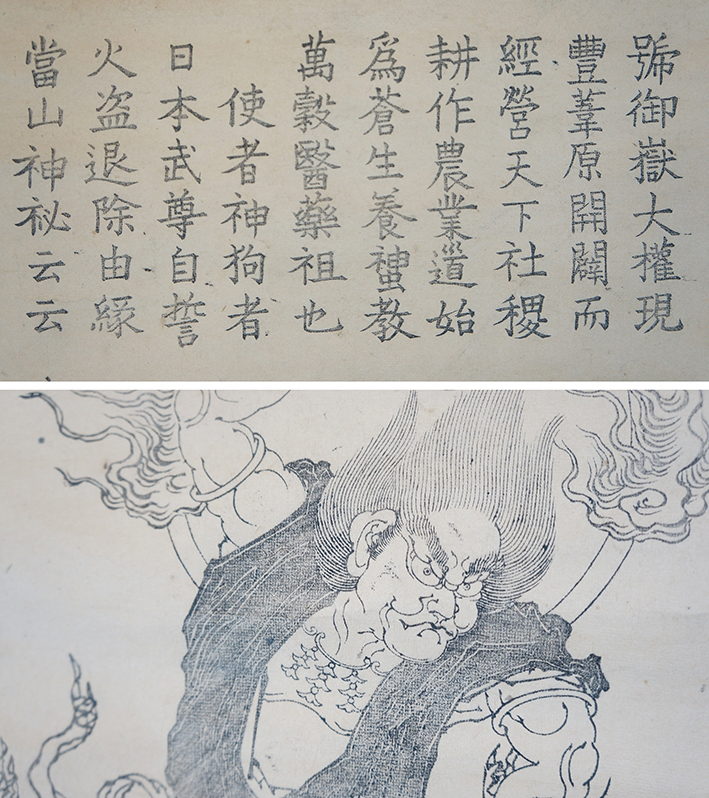 號御嶽大權現
豐葦原開闢而
經營天下社稷
耕作農業道始
為蒼生養蠶教
萬穀醫藥祖也
使者神狗者
日本武尊自誓
火盗退除由緣
當山神祕云云